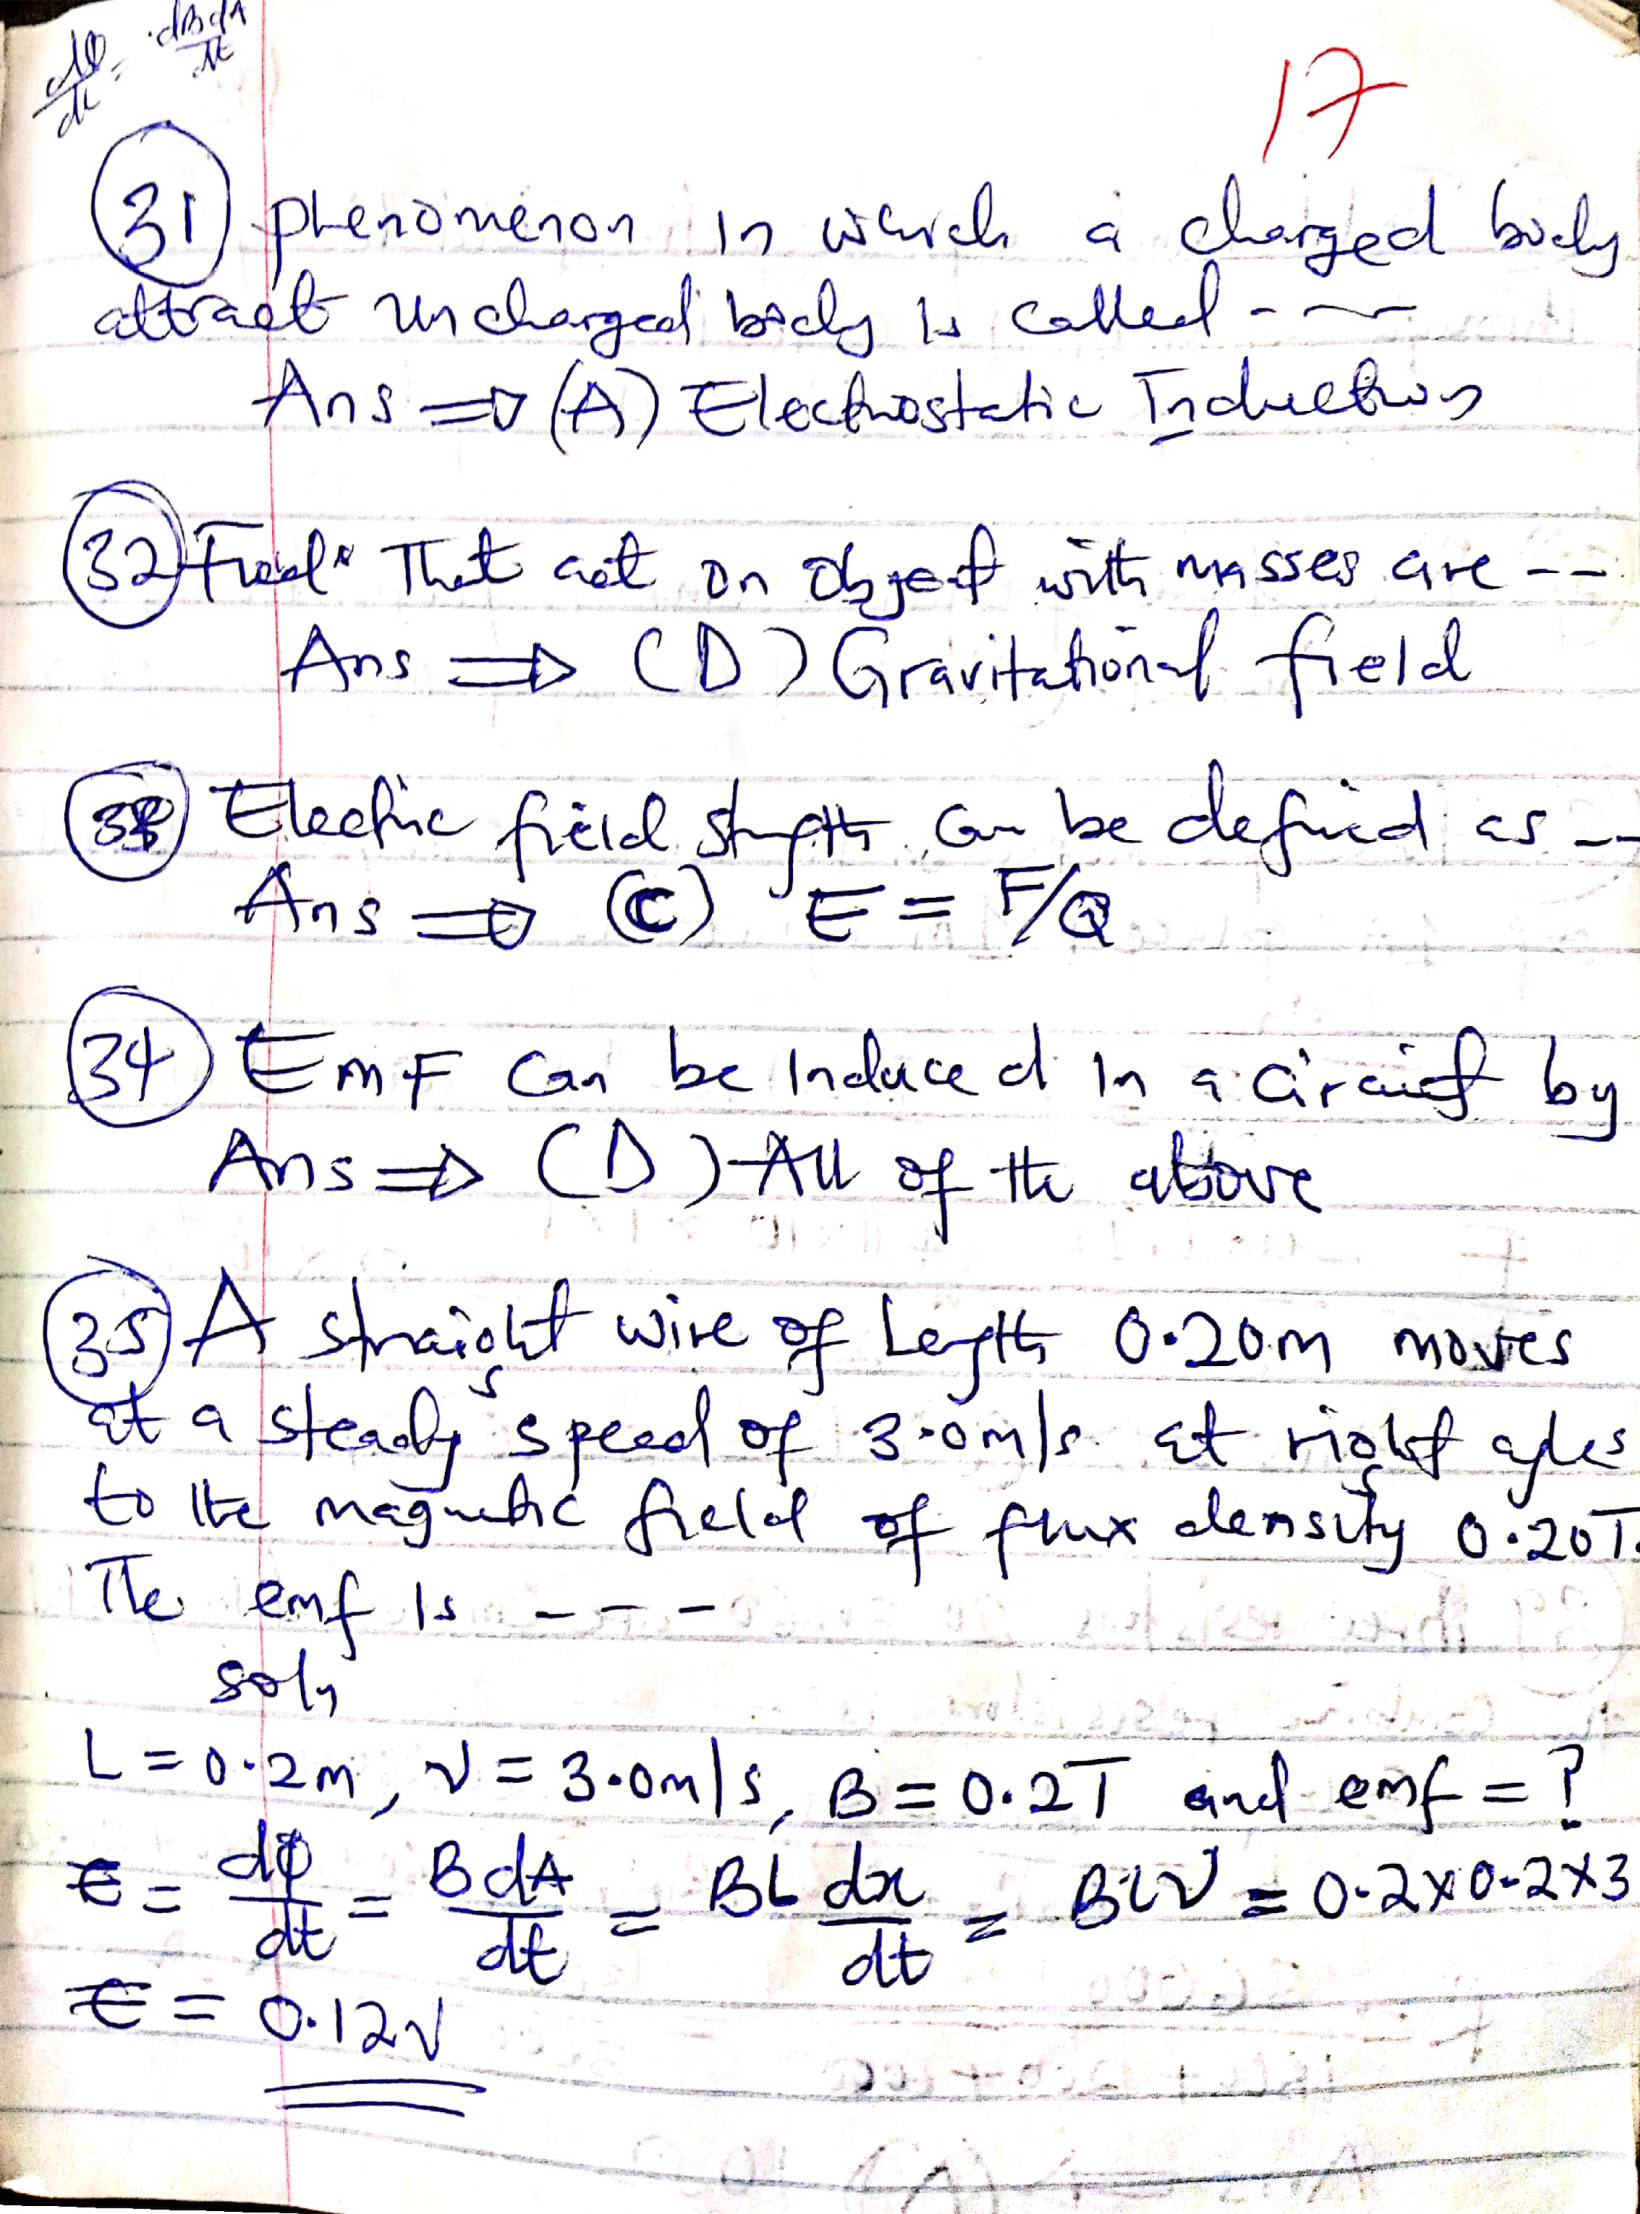 dΦ/dt = dBdA/dt
17
(31) phenomenon in which a charged body
attract uncharged body is called - - -
Ans ⇒ (A) Electrostatic Induction
(32) Field that act on object with masses are - -
Ans ⇒ (D) Gravitational field
(33) Electric field strength can be defined as - -
Ans ⇒ (C) E = F/Q
(34) EMF can be Induced in a circuit by
Ans ⇒ (D) All of the above
(35) A straight wire of Length 0.20m moves
at a steady speed of 3.0m/s at right agles
to the magnetic field of flux density 0.20T.
The emf is - - -
soln
L = 0.2m, v = 3.0m/s, B = 0.2T and emf = ?
E = dφ/dt = BdA/dt = BL dx/dt = BLV = 0.2x0.2x3
E = 0.12V